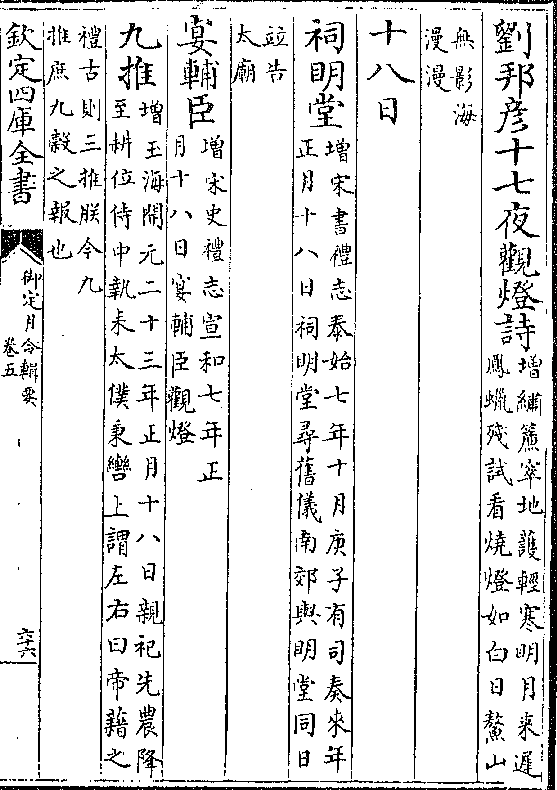 劉邦彥十七夜觀燈詩增繡簾窣地護輕寒明月來遲
鳳蠟殘試看燒燈如白日鰲山
無影海
漫漫
十八日
祠明堂增宋書禮志泰始七年十月庚子有司奏來年
正月十八日祠明堂尋舊儀南郊與明堂同日
竝告
太廟
宴輔臣增宋史禮志宣和七年正
月十八日宴輔臣觀燈
九推增玉海開元二十三年正月十八日親祀先農降
至耕位侍中執耒太僕秉轡上謂左右曰帝藉之
禮古則三推朕今九
推庶九穀之報也
欽定四庫全書
御定月令輯要
卷五
六六